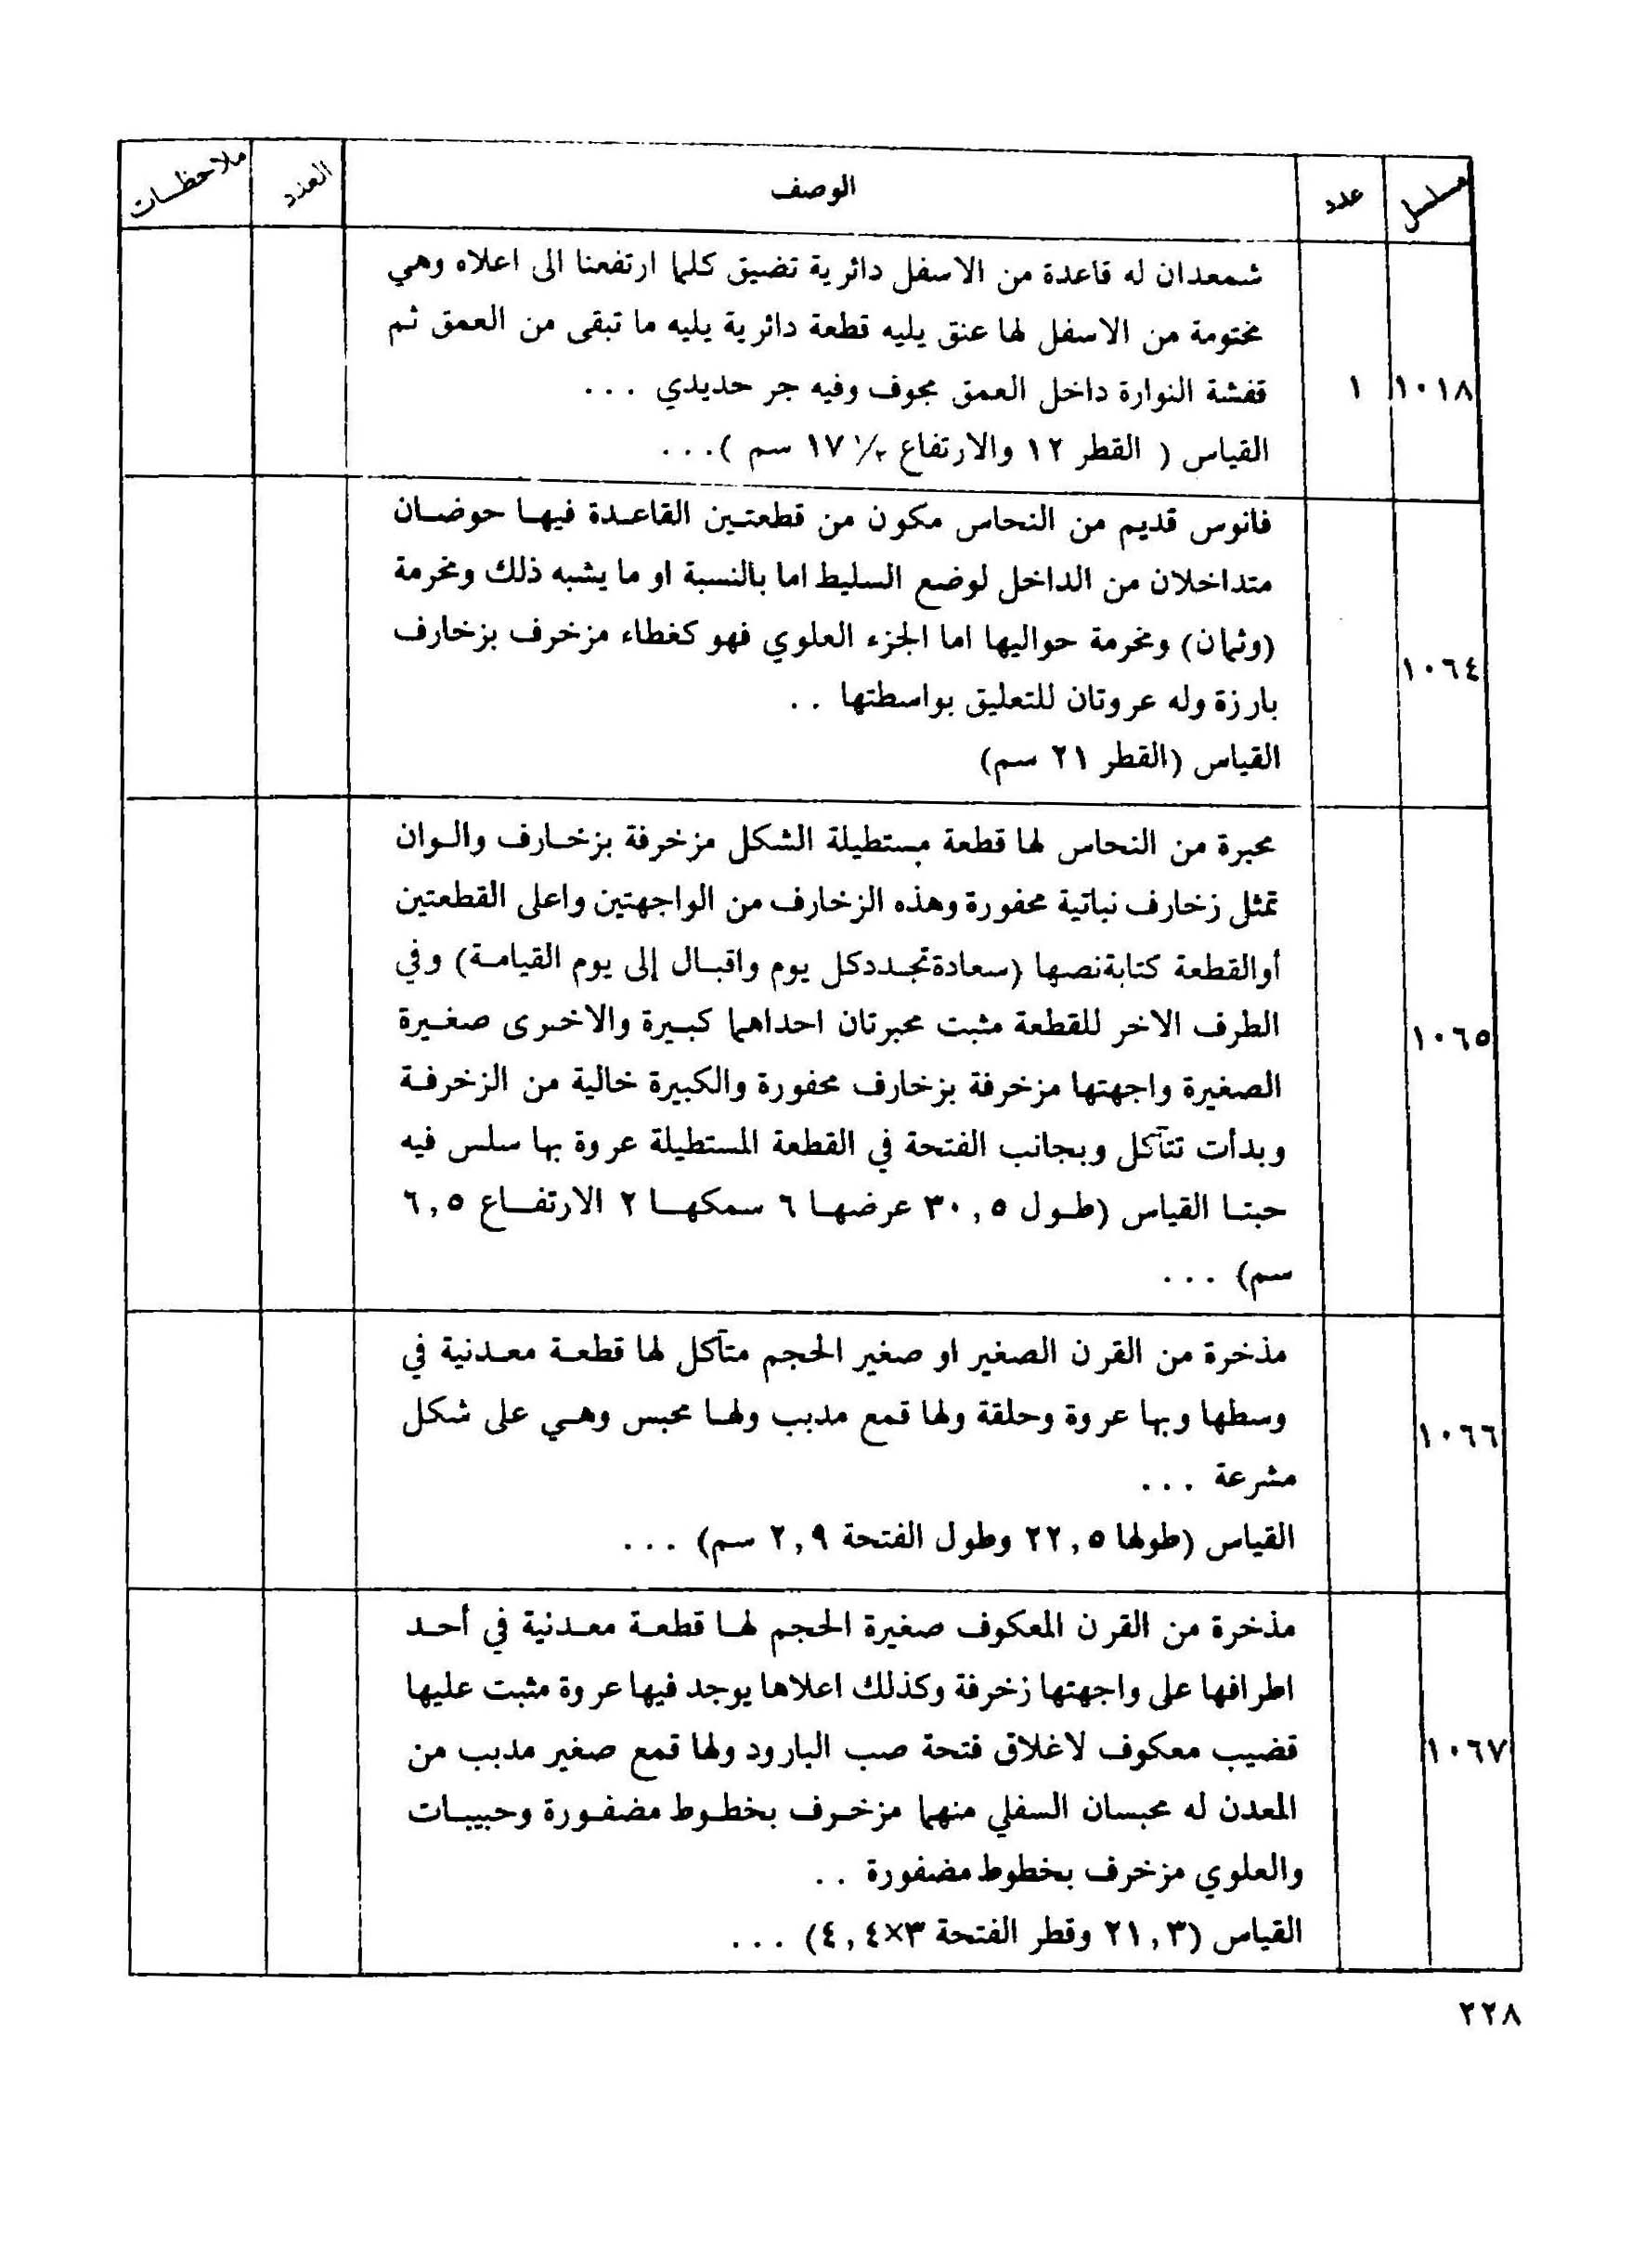 مسلسل عدد الوصف العدد ملاحظات
١٠١٨ ١
شمعدان له قاعدة من الاسفل دائرية تضيق كلما ارتفعنا الى اعلاه وهي
مختومة من الاسفل لها عنق يليه قطعة دائرية يليه ما تبقى من العمق ثم
قفشة النوارة داخل العمق مجوف وفيه جر حديدي ...
القياس ( القطر ١٢ والارتفاع ١/٢ ١٧ سم )...
١٠٦٤
فانوس قديم من النحاس مكون من قطعتين القاعدة فيها حوضان
متداخلان من الداخل لوضع السليط اما بالنسبة او ما يشبه ذلك ومخرمة
(وثمان) ومخرمة حواليها اما الجزء العلوي فهو كغطاء مزخرف بزخارف
بارزة وله عروتان للتعليق بواسطتها ..
القياس (القطر ٢١ سم)
١٠٦٥
محبرة من النحاس لها قطعة مستطيلة الشكل مزخرفة بزخارف والوان
تمثل زخارف نباتية محفورة وهذه الزخارف من الواجهتين واعلى القطعتين
أوالقطعة كتابة نصها (سعادة تجدد كل يوم واقبال إلى يوم القيامة) وفي
الطرف الاخر للقطعة مثبت محبرتان احداهما كبيرة والاخرى صغيرة
الصغيرة واجهتها مزخرفة بزخارف محفورة والكبيرة خالية من الزخرفة
وبدأت تتآكل وبجانب الفتحة في القطعة المستطيلة عروة بها سلس فيه
حبتا القياس (طول ٣٠,٥ عرضها ٦ سمكها ٢ الارتفاع ٦,٥
سم) ...
١٠٦٦
مذخرة من القرن الصغير او صغير الحجم متآكل لها قطعة معدنية في
وسطها وبها عروة وحلقة ولها قمع مدبب ولها محبس وهي على شكل
مشرعة ...
القياس (طولها ٢٢,٥ وطول الفتحة ٢,٩ سم) ...
١٠٦٧
مذخرة من القرن المعكوف صغيرة الحجم لها قطعة معدنية في أحد
اطرافها على واجهتها زخرفة وكذلك اعلاها يوجد فيها عروة مثبت عليها
قضيب معكوف لاغلاق فتحة صب البارود ولها قمع صغير مدبب من
المعدن له محبسان السفلي منهما مزخرف بخطوط مضفورة وحبيبات
والعلوي مزخرف بخطوط مضفورة ..
القياس (٢١,٣ وقطر الفتحة ٣×٤,٤) ...
٢٢٨